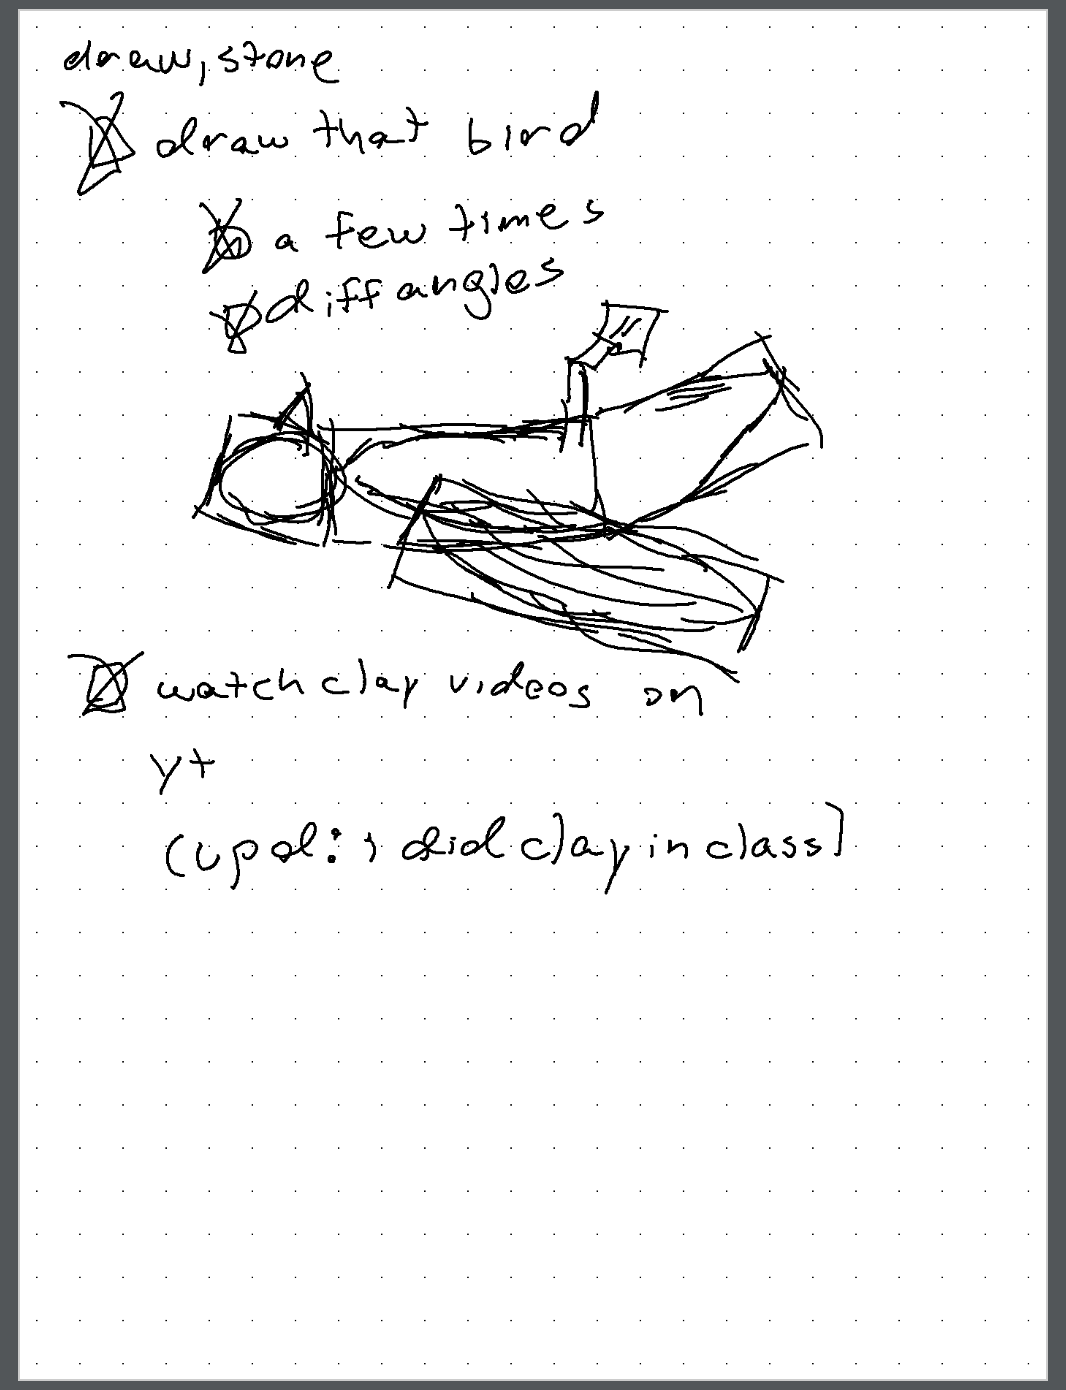 draw, stone
draw that bird
a few times
diff angles
watch clay videos on
yt
(upd: i did clay in class)